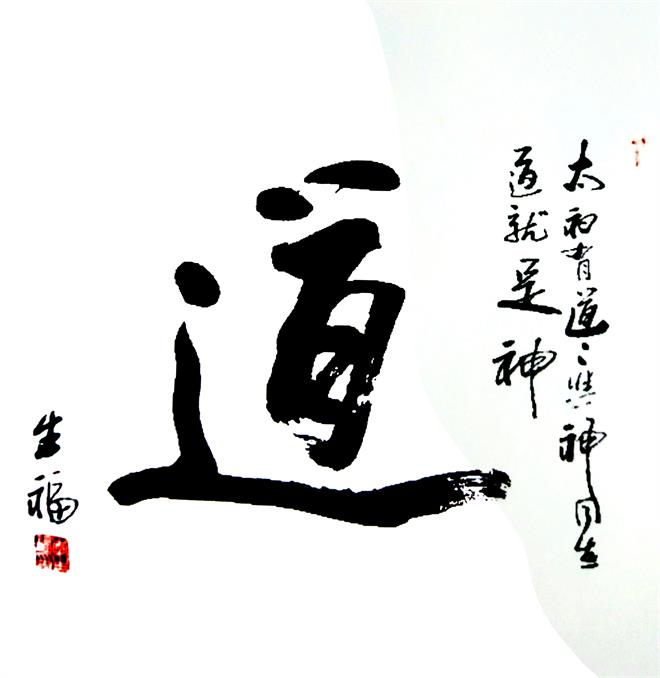 太初有道〻與神同在
道就是神
道
生福